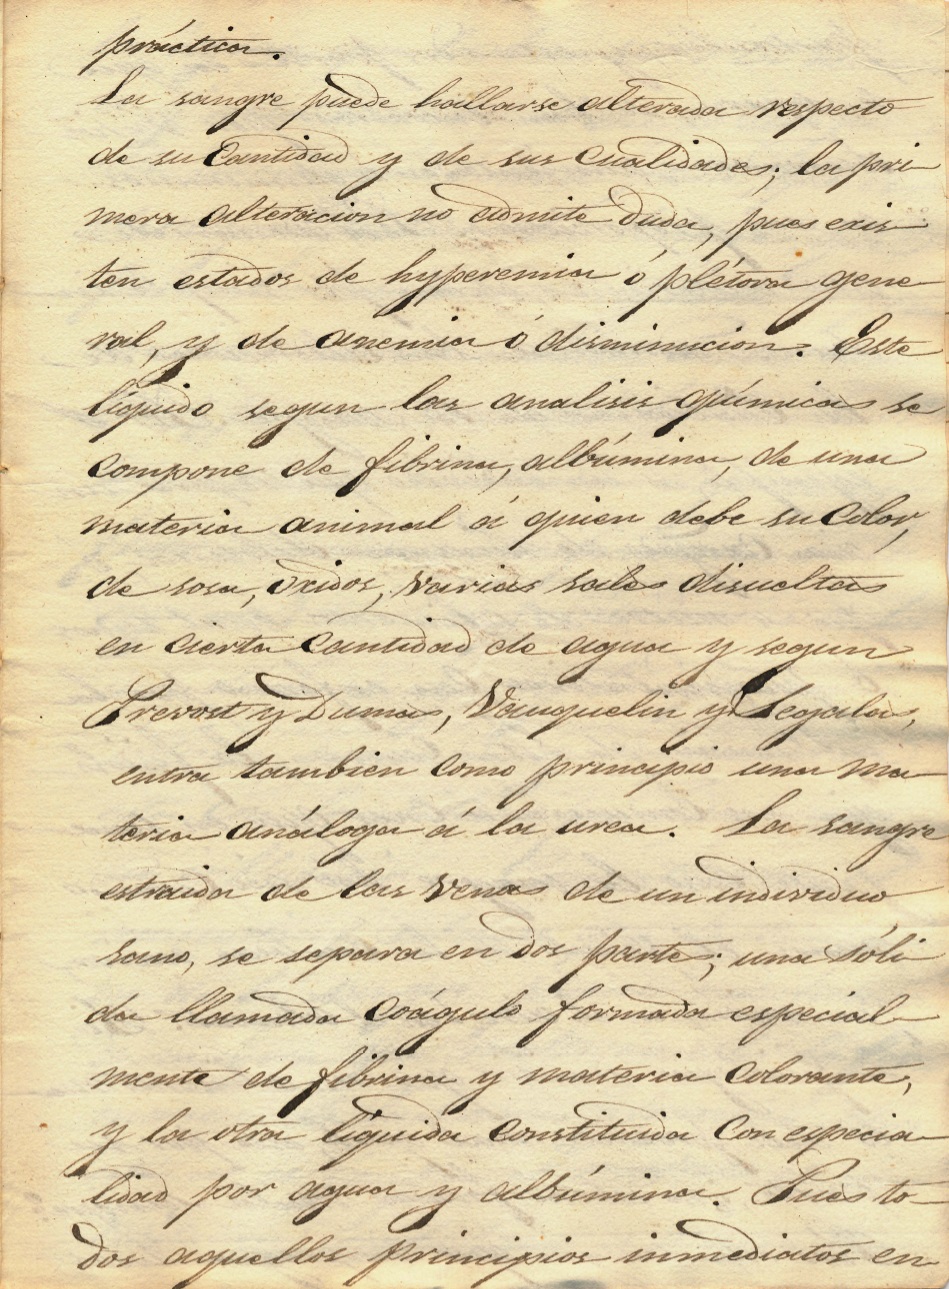 práctica.
La sangre puede hallarse alterada respecto
de su Cantidad y de sus Cualidades; la pri
mera alteracion no admite duda, pues exis
ten estados de hyperemia ó plétora gene
ral, y de anemia ó disminucion. Este
líquido segun las analisis químicas se
compone de fibrina, albúmina, de una
materia animal á quien debe su Color,
de sosa, óxidos, varias sales disueltas
en cierta Cantidad de agua y segun
Prevost y Dumas, Vauquelin y Segalas,
entra tambien como principio una ma
teria análoga á la urea. La sangre
estraida de las venas de un individuo
sano, se separa en dos parte; una sóli
da llamada coágulo formada especial
mente de fibrina y materia Colorante,
y la otra líquida constituida Con especia
lidad por agua y albúmina. Pues to
dos aquellos principios inmediatos en